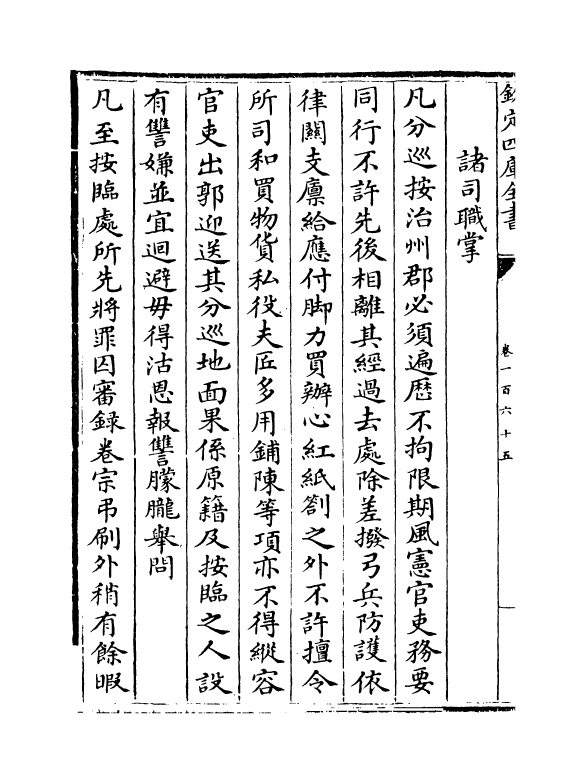 欽定四庫全書
卷一百六十五
諸司職掌
凡分巡按治州郡必須遍歷不拘限期風憲官吏務要
同行不許先後相離其經過去處除差撥弓兵防護依
律關支廪給應付脚力買辦心紅紙劄之外不許擅令
所司和買物貨私役夫匠多用鋪陳等項亦不得縱容
官吏出郭迎送其分巡地面果係原籍及按臨之人設
有讐嫌並宜迴避毋得沽恩報讐朦朧舉問
凡至按臨處所先將罪囚審録卷宗弔刷外稍有餘暇